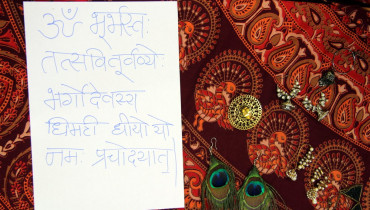 ॐ भूर्भुस्वः
तत्सवितूर्वण्येः
भर्गोदेवस्य
धिमही धीयो यो
नमः प्रचोदयात्।